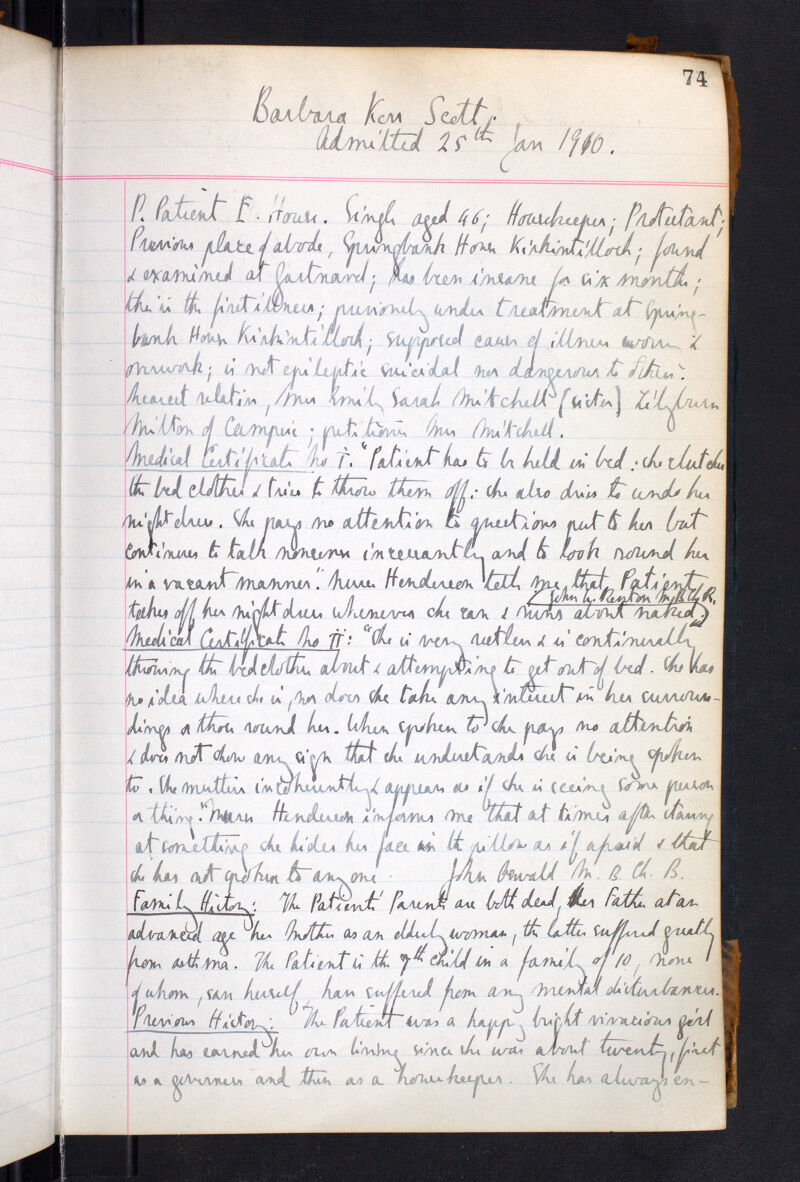 74
Barbara Kerr Scott.
Admitted 25th Jan 1910.
P. Patient E. House. Single aged 46; Housekeeper; Protestant;
Previous place of abode, Springbank House Kirkintilloch; found
& examined at Gartnavel; has been insane for six months;
this is the first illness; previously under treatment at Spring-
bank House Kirkintilloch; supposed cause of illness worry &
overwork; is not epileptic suicidal nor dangerous to others.
Nearest relative, Mrs Emily Sarah Mitchell (sister) Lilyburn
Milton of Campsie; petitioner Mrs Mitchell.
Medical Certificate No I. "Patient has to be held in bed: she clutches
the bed clothes & tries to throw them off: she also tries to undo her
night dress. She pays no attention to questions put to her but
continues to talk nonsense incessantly and to look round her
in a vacant manner." Nurse Henderson tells me that Patient
takes off her night dress whenever she can & runs about naked.
John W. M.B. Ch. B.
Medical Certificate No II: "She is very restless & is continually
throwing the bedclothes about & attempting to get out of bed. She has
no idea where she is, nor does she take any interest in her surroun-
dings or those round her. When spoken to she pays no attention
& does not show any sign that she understands she is being spoken
to. She mutters incoherently & appears as if she is seeing some person
or thing." Nurse Henderson informs me that at times after staring
at something she hides her face in the pillow as if afraid & that
she has not spoken to any one. John Oswald M. B. Ch. B.
Family History: The Patients' Parents are both dead, Her Father at an
advanced age her Mother as an elderly woman, the latter suffered greatly
from asthma. The Patient is the 7th child in a family of 10, none
of whom, save herself, have suffered from any mental disturbances.
Previous History: The Patient was a happy bright vivacious girl
and has earned her own living since she was about twenty, first
as a governess and then as a housekeeper. She has always en-